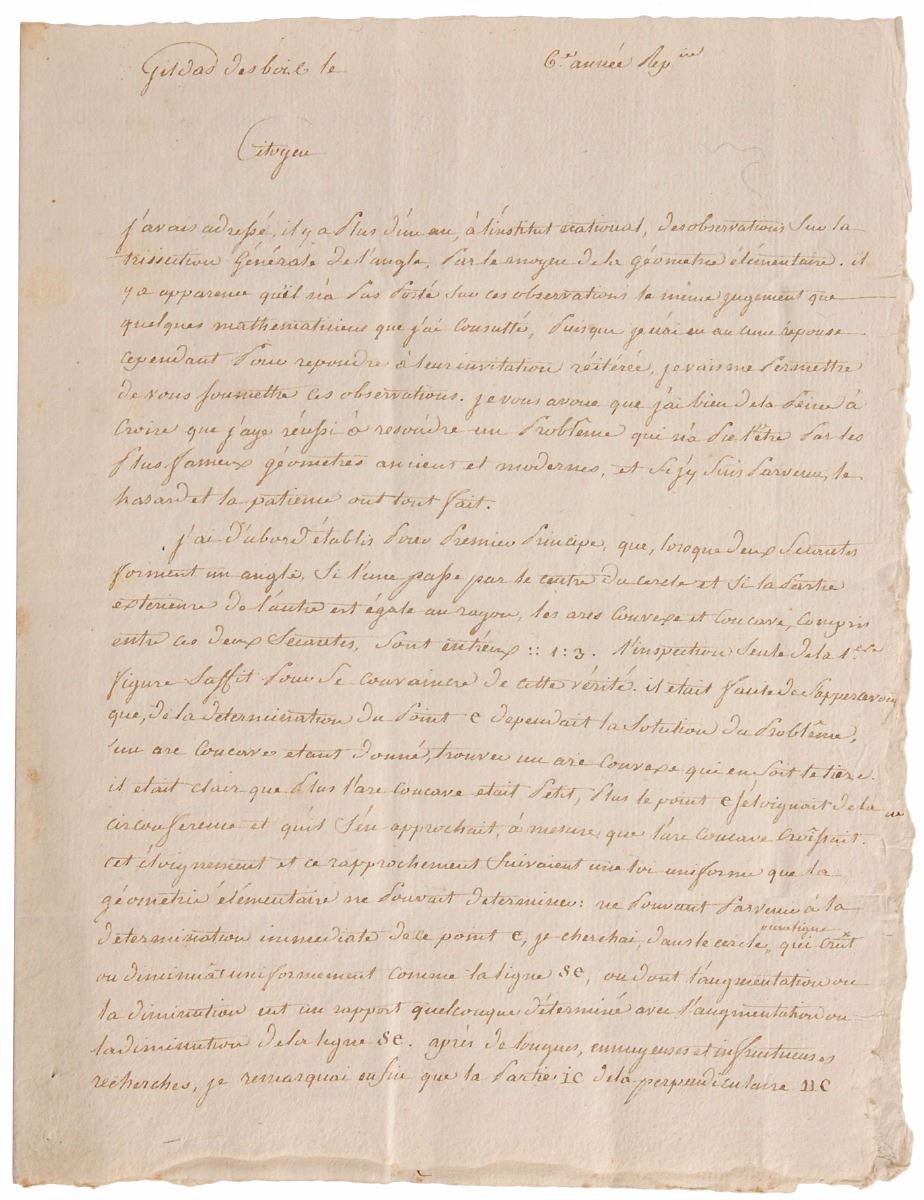 Gildas des bois le 6.e année Rep.ine
Citoyen
j'avais adressé, il y a plus d'un an, à l'institut national, des observations sur la
trissection générale de l'angle, par le moyen de la géometrie élémentaire. il
y a apparence qu'il n'a pas porté sur ces observations le même jugement que
quelques mathematiciens que j'ai consulté, puisque je n'ai eu aucune réponse.
cependant pour repondre à leur invitation réitérée, je vais me permettre
de vous soumettre ces observations. je vous avoue que j'ai bien de la peine à
croire que j'aye réussi à resoudre un problême qui n'a pu l'être par les
plus fameux géometres anciens et modernes, et si j'y suis parvenu, le
hasard et la patience ont tout fait.
j'ai d'abord établis pour premier principe, que, lorsque deux secantes
forment un angle, si l'une passe par le centre du cercle et si la partie
exterieure de l'autre est égale au rayon, les arcs convexe et concave, compris
entre ces deux secantes, sont entr'eux :: 1 : 3. l'inspection seule de la 1.ere
figure suffit pour se convaincre de cette vérité. il était facile de s'appercevoir
que, de la determination du point e dependait la solution du problême,
un arc concave etant donné, trouver un arc convexe qui en soit le tiers.
il etait clair que plus l'arc concave etait petit, plus le point e s'éloignait de la
circonference et qu'il s'en approchait, à mesure que l'arc concave croissait.
cet éloignement et ce rapprochement suivaient une loi uniforme que la
géometrie élémentaire ne pouvait determiner: ne pouvant parvenir à la
determination immediate de ce point e, je cherchai, dans le cercle, une ligne qui crût
ou diminuât uniformement comme la ligne se, ou dont l'augmentation ou
la diminution eut un rapport quelconque déterminé avec l'augmentation ou
la diminution de la ligne se. après de longues, ennuyeuses et infructueuses
recherches, je remarquai enfin que la partie ic de la perpendiculaire